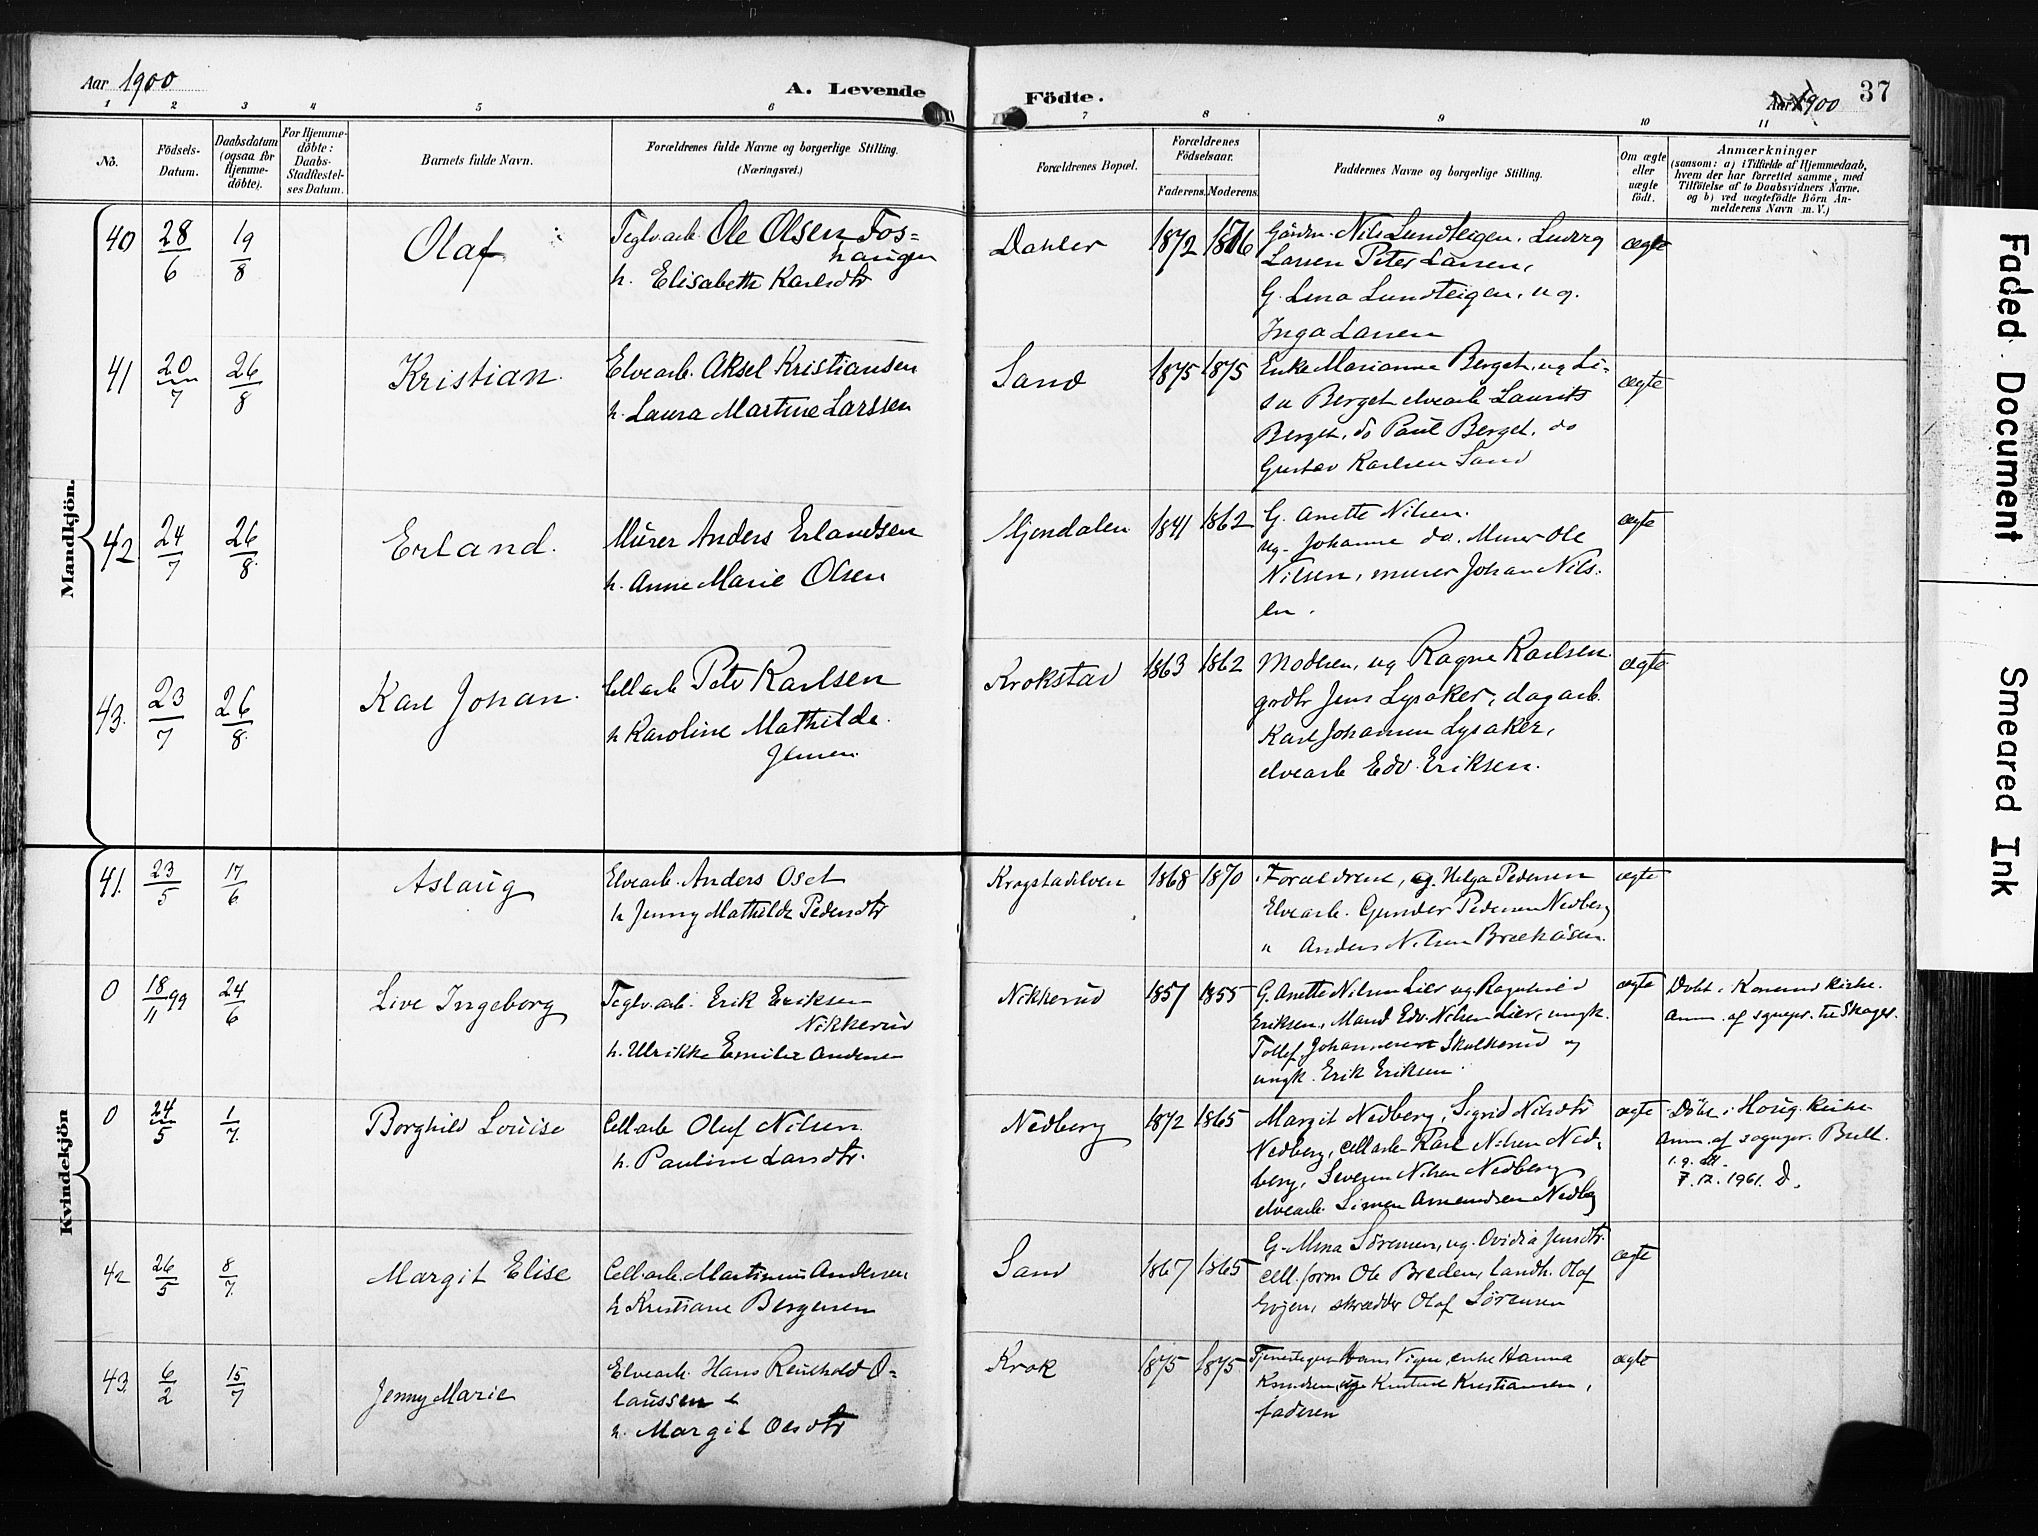 Aar 1900
A. Levende
Födte.
Aar 1900
37
1 2 3 4 5 6 7 8 9 10 11
No.
Födsels-
Datum.
Daabsdatum
(ogsaa for
Hjemme-
döbte).
For Hjemme-
döbte:
Daabs-
Stadfæstel-
ses Datum.
Barnets fulde Navn.
Forældrenes fulde Navne og borgerlige Stilling.
(Næringsvei.)
Forældrenes Bopæl.
Forældrenes
Födselsaar.
Faderens. Moderens.
Faddernes Navne og borgerlige Stilling.
Om ægte
eller
uægte
födt.
Anmærkninger
(saasom: a) i Tilfælde af Hjemmedaab,
hvem der har forrettet samme, med
Tilföielse af to Daabsvidners Navne,
og b) ved uægtefödte Börn An-
melderens Navn m. V.)
Mandkjön.
40 28/6 19/8 Olaf
Teglv.arb. Ole Olsen Fos-
haugen
h. Elisabeth Karlsdtr
Dahler 1872 1876
Gårdm. Nils Lundteigen, Ludvig
Larsen Peter Larsen,
G. Lina Lundteigen, ug.
Inga Larsen
ægte
41 20/7 26/8 Kristian.
Elvearb. Aksel Kristiansen
h. Laura Martine Larssen
Sand 1875 1875
Enke Marianne Berget, ug Li-
sa Berget elvearb Laurits
Berget, do Paul Berget, do
Gustav Karlsen Sand
ægte
42 24/7 26/8 Erland.
Murer Anders Erlandsen
h. Anne Marie Olsen
Mjøndalen 1841 1862
G. Anette Nilsen.
ug. Johanne do. Murer Ole
Nilsen, murer Johan Nils-
en.
ægte
43. 23/7 26/8 Karl Johan.
Cellarb Petr Karlsen
h Karoline Mathilde
Jensen.
Krokstad 1863 1862
Moderen, ug Ragna Karlsen
grdbr Jens Lysaker, dagarb.
Karl Johansen Lysaker,
elvearb Edv. Eriksen.
ægte
Kvindekjön
41. 23/5 17/6 Aslaug
Elvearb. Anders Oset
h Jenny Mathilde Pedersdtr
Krogstadelven 1868 1870
Forældrene, ug. Helga Pedersen
Elvearb. Gunder Pedersen Nedberg
" Anders Nilsen Brækåsen.
ægte
0 18/11 99 24/6 Live Ingeborg
Teglv.arb. Erik Eriksen
Nikkerud
h. Ulrikke Emilie Andersen
Nikkerud 1857 1855
G. Anette Nilsen Lier ug. Ragnhild
Eriksen, Maud Edv. Nilsen Lier, ungk.
Tollef Johannesen Skalkerud og
ungk. Erik Eriksen.
ægte
Døbt i Konnerud kirke.
Anm. af sognepr. til Skoger.
0 24/5 1/7. Borghild Lovise
Cellarb Oluf Nilsen
h. Pauline Larsdtr.
Nedberg 1872 1865
Margit Nedberg, Sigrid Nilsdtr
Nedberg, cellarb Karl Nilsen Ned-
berg, Severin Nilsen Nedberg
elvearb. Simen Amundsen Nedbg
ægte
Døbt i Houg. kirke
Anm. af sognepr. Bull.
7.12.1961. D.
42 26/5 8/7. Margit Elise
Cell.arb. Martinius Andersen
h Kristiane Bergersen
Sand 1867 1865
G. Mina Sørensen, ug. Ovidia Jensdtr.
cell.form Ole Breden, landh. Olaf
Gojen, skrædder Olaf Sørensen
ægte
43. 6/2 15/7 Jenny Marie
Elvearb. Hans Reinhold O-
laussen
h. Margit Olsdtr
Krok 1875 1875
enke Hanna
Knudsen, ug. Kristine Kristiansen,
faderen
ægte
Faded Document
Smeared Ink